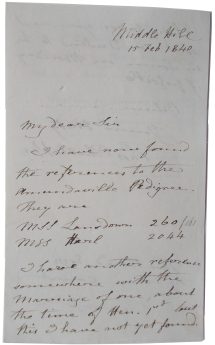 Middle Hill
15 Feb 1840
My dear Sir
I have now found
the references to the
Amundaville Pedigree.
They are
MSS Lansdown 260
MSS Harl 2044
I have another reference
somewhere with the
Marriage of one, about
the time of Hen. 1st but
this I have not yet found.